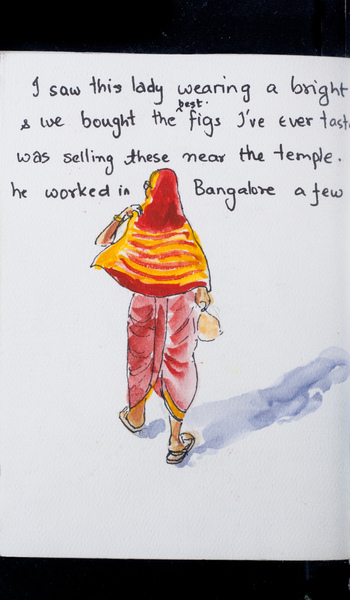 I saw this lady wearing a bright
& we bought the best. figs I've ever tast
was selling these near the temple.
he worked in Bangalore a few